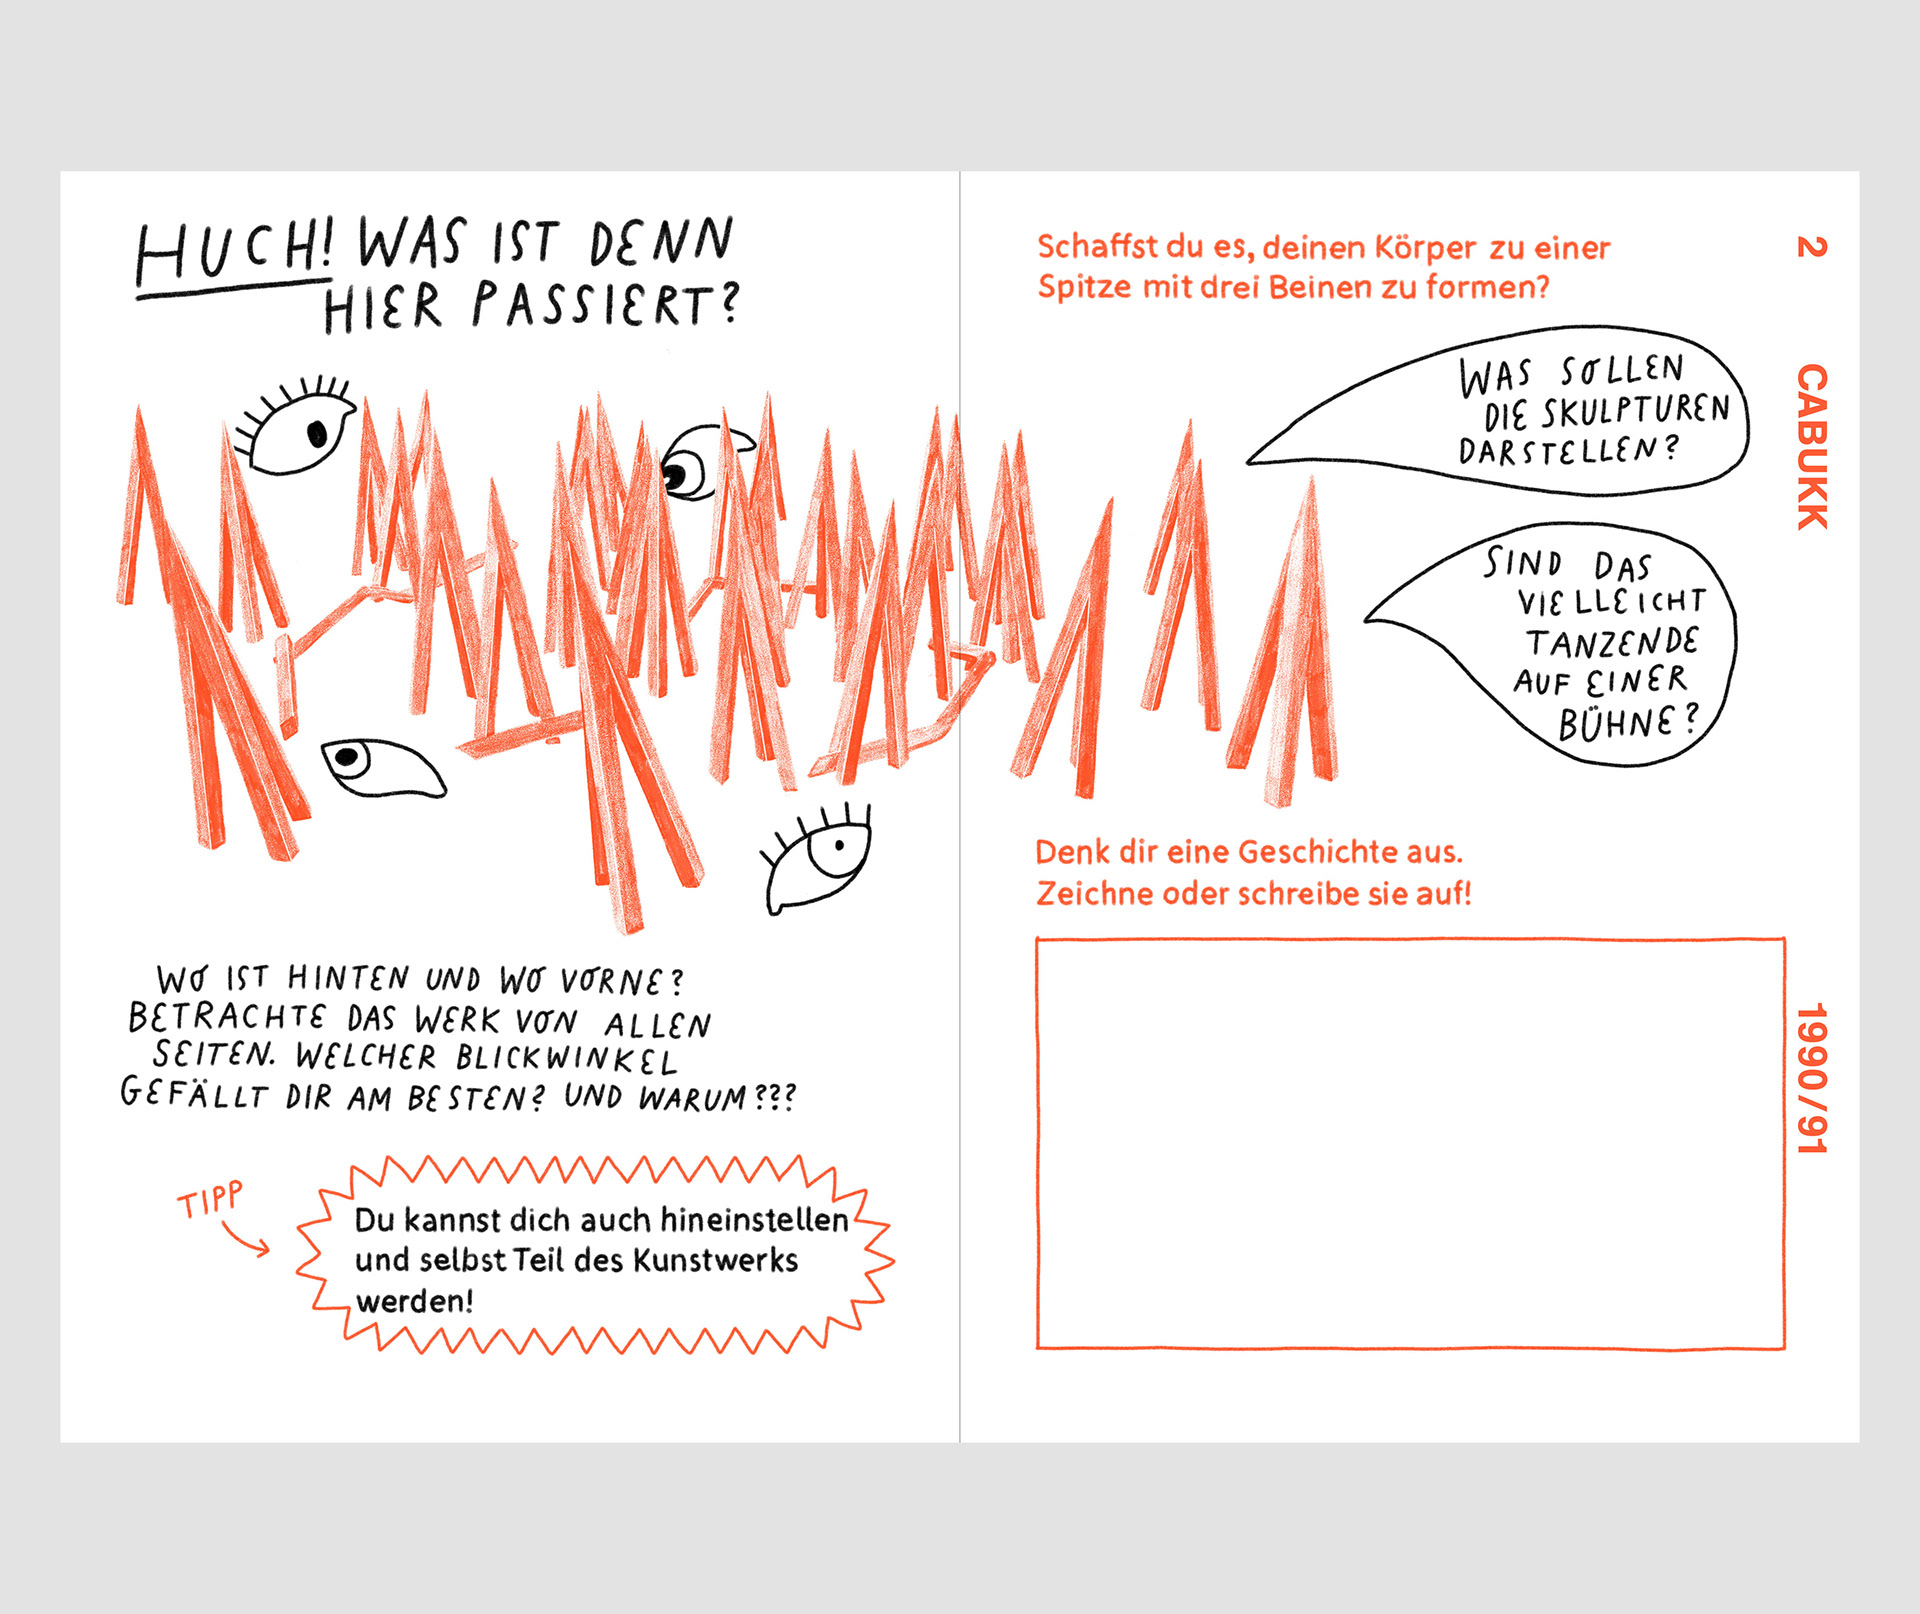 HUCH! WAS IST DENN
HIER PASSIERT?
WO IST HINTEN UND WO VORNE?
BETRACHTE DAS WERK VON ALLEN
SEITEN. WELCHER BLICKWINKEL
GEFÄLLT DIR AM BESTEN? UND WARUM???
TIPP
Du kannst dich auch hineinstellen
und selbst Teil des Kunstwerks
werden!
Schaffst du es, deinen Körper zu einer
Spitze mit drei Beinen zu formen?
WAS SOLLEN
DIE SKULPTUREN
DARSTELLEN?
SIND DAS
VIELLEICHT
TANZENDE
AUF EINER
BÜHNE?
Denk dir eine Geschichte aus.
Zeichne oder schreibe sie auf!
2 CABUKK 1990/91